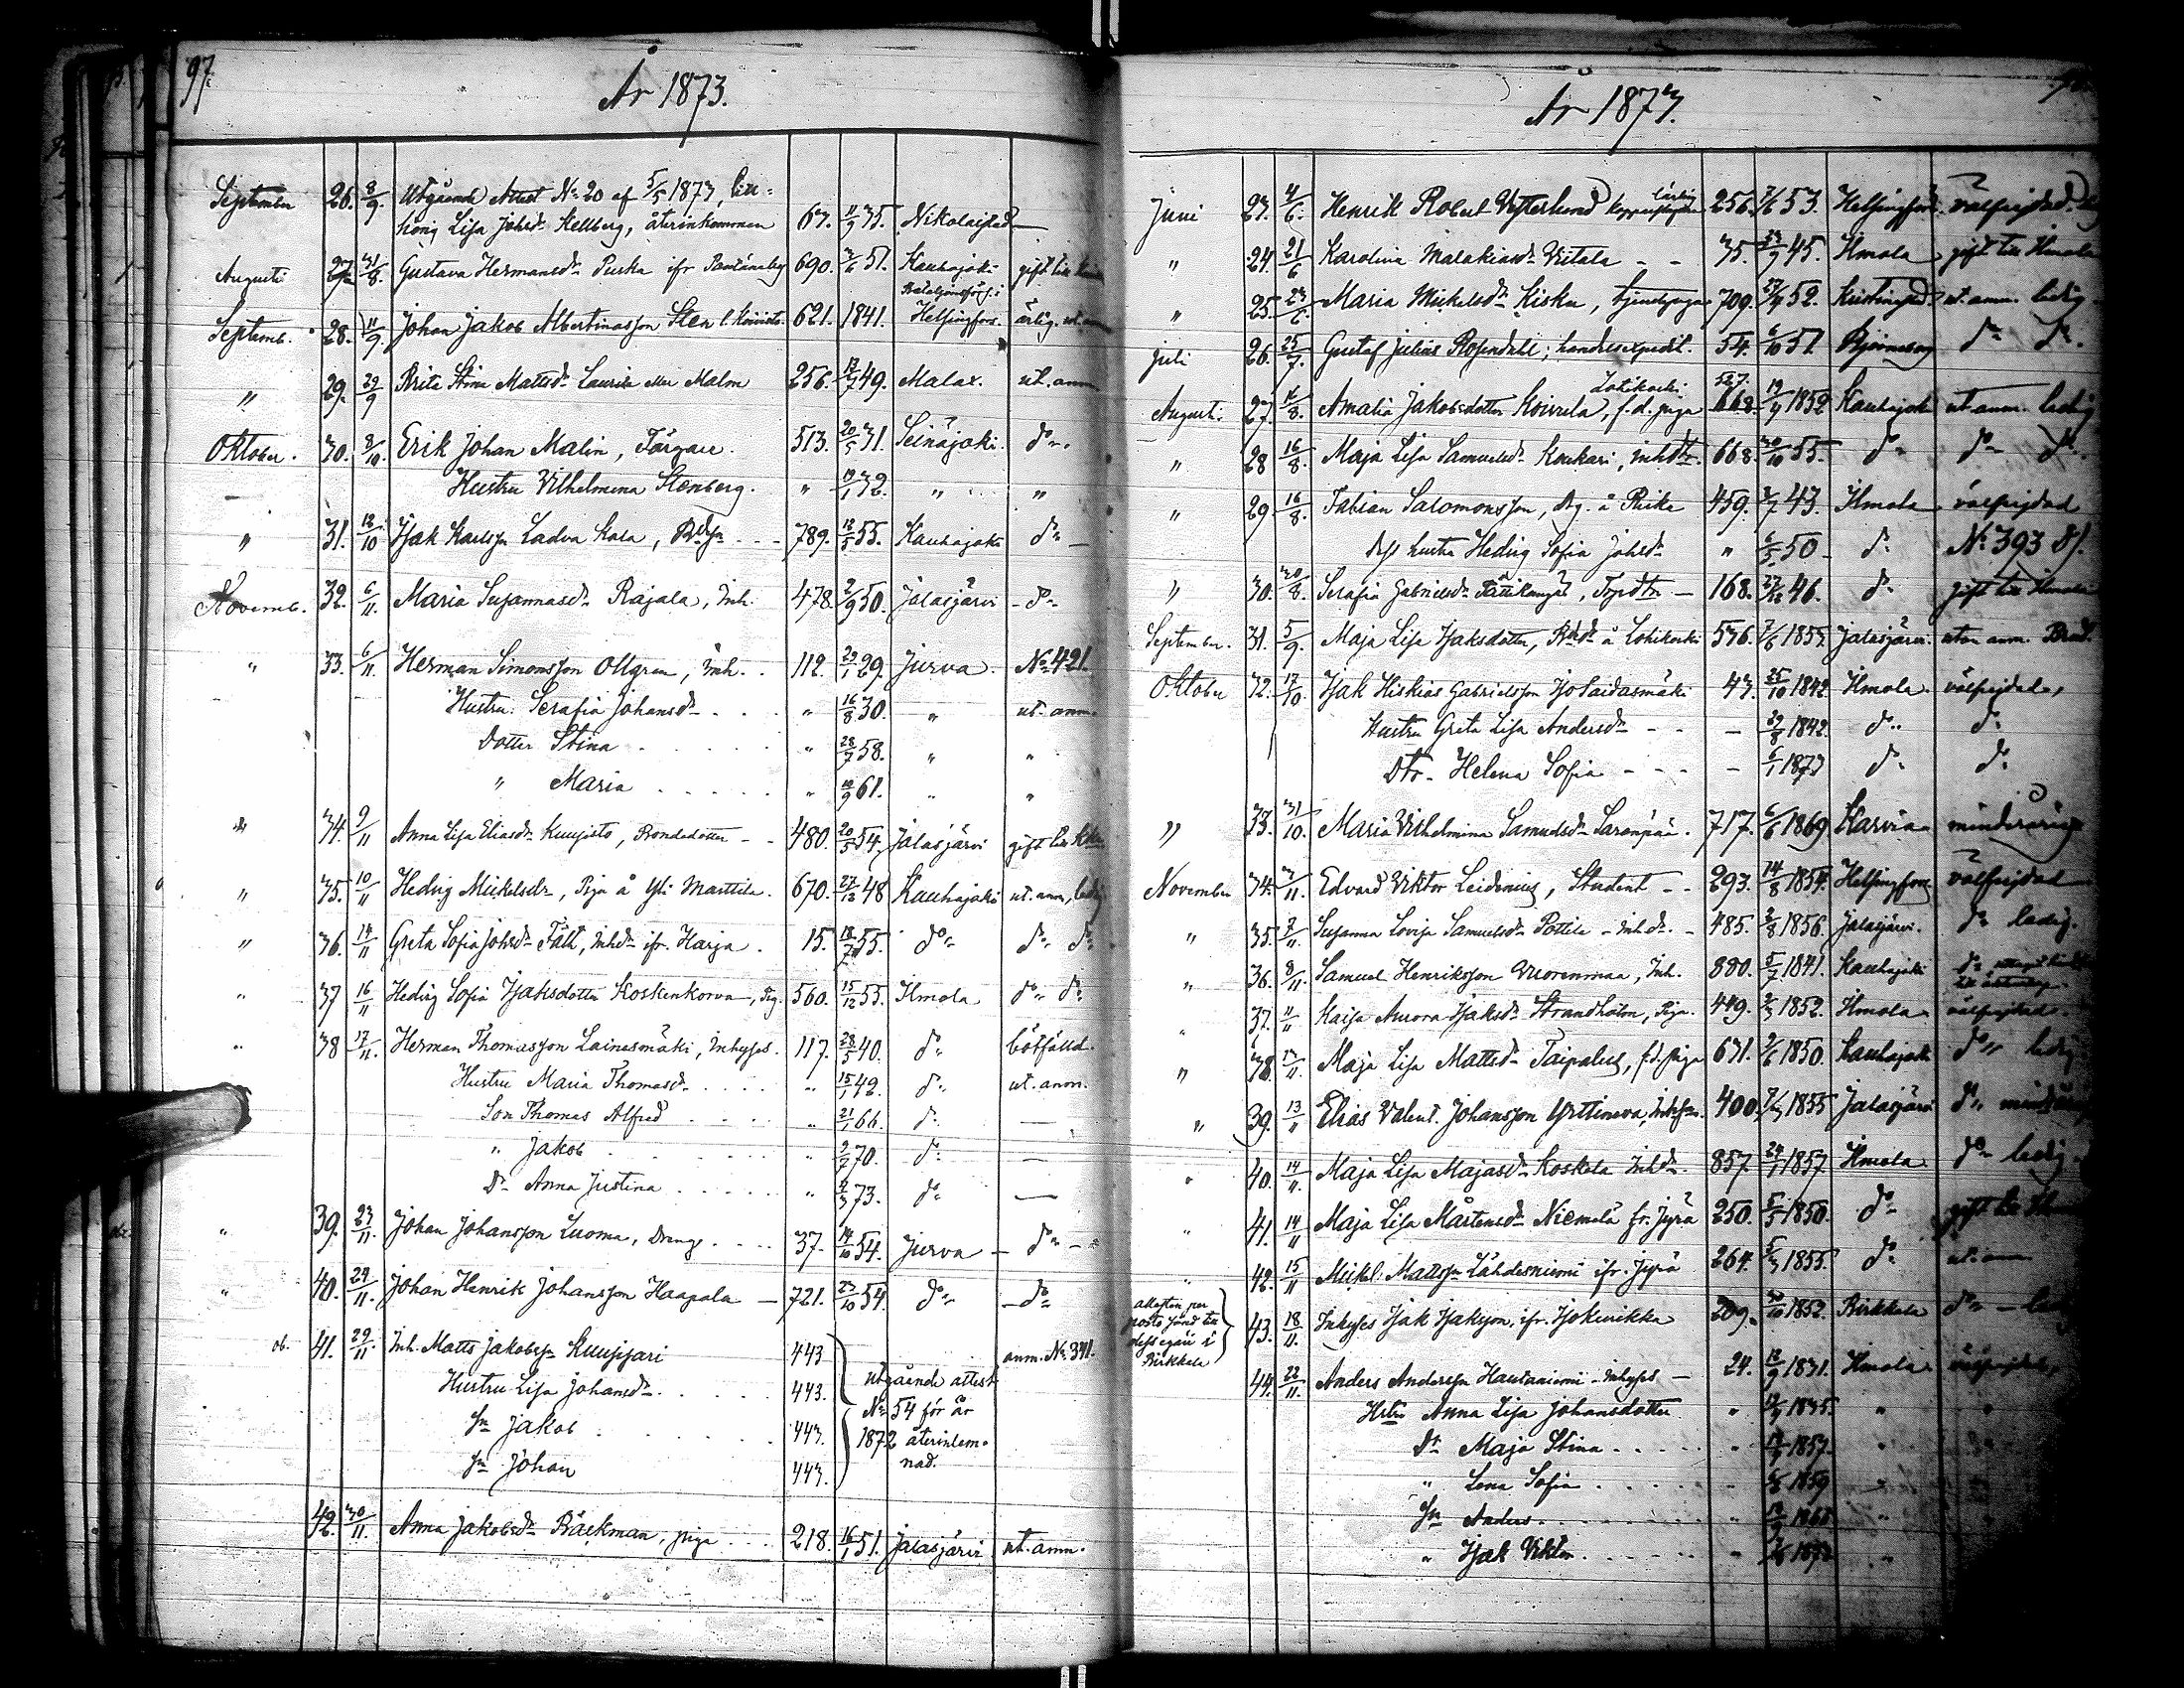 97.
År 1873.
September 26. 8/9. Utgående Attest No 20 af 5/5 1873,
Lisa Johsdr Kellberg, återinkommen 67. 11/9 35. Nikolaistad —
Augusti 27. 31/8. Gustava Hermansdr Puska ifr 690. 3/6 51. Kauhajoki gift till
Septemb. 28. 11/9. Johan Jakob Albertinasson Sten l. Koivisto 621. 1841. Helsingfors. ärlig. ut. anm
" 29. 29/9 Brita Stina Mattsdr Laurila eller Malm 256. 12/7 49. Malax. ut. anm
Oktober. 30. 2/10. Erik Johan Malin, Färgare. 513. 20/5 31. Seinäjoki. do.
Hustru Vilhelmina Stenberg. " 19/1 32. " "
" 31. 12/10 Isak Karlsson Ladva Kala, 789. 12/5 55. Kauhajoki do —
Novemb. 32. 6/11. Maria Susannasdr Rajala, Inh. 478. 2/9 50. Jalasjärvi - do
" 33. 6/11. Herman Simonsson Ollgren, Inh. . 112. 29/1 29. Jurva. No 421.
Hustru. Serafia Johansdr . . . " 16/8 30. " ut. anm.
Dotter Stina . . . . . " 28/7 58. " "
" Maria . . . . . " 12/9 61. " "
34. 9/11 Anna Lisa Eliasdr Kuusisto, Bondedotter - - 480. 20/5 54. Jalasjärvi gift till
" 35. 10/11 Hedvig Mickelsdr, Piga å Yli Marttila. 670. 27/12 48 Kauhajoki ut. anm, ledig.
" 36. 14/11 Greta Sofia Johsdr Fält, Inhdr ifr. Harja . 15. 18/7 55. do do do
" 37 16/11 Hedvig Sofia Isaksdotter Koskenkorva, Pig. 560. 15/12 55. Ilmola do do
" 38 17/11. Herman Thomasson Lainesmäki, Inhyses. 117. 28/5 40. do bötfälld.
Hustru Maria Thomasdr . . . . " 15/1 42. do ut. anm.
Son Thomas Alfred . . . . " 21/1 66. do —
" Jakob . . . . . " 9/2 70. do —
Dr Anna Justina . . . . . " 2/3 73. do —
" 39. 23/11. Johan Johansson Luoma, Dreng . . . . 37. 14/10 54. Jurva - do - -
" 40. 29/11. Johan Henrik Johansson Haapala — 721. 23/10 54. do - do
41. 29/11. Inh. Matts Jakobsson Kuusjari 443 anm. No 341.
Hustru Lisa Johansdr . . . . . 443. Utgående attest
Sn Jakob . . . . . 443. No 54 för år
Sn Johan 443. 1872 återinlem-
nad.
42. 30/11. Anna Jakobsdr Bäckman, piga . . . 218. 16/1 51. Jalasjärvi ut. anm.
År 1873.
Juni 23. 4/6. Henrik Robert Vesterlund 256. 7/6 53. Helsingfors. välfrejdad.
" 24. 21/6 Karolina Malakiasdr Viitala - - 35. 23/9 45. Ilmola gift till Ilmola
" 25. 23/6 Maria Mickelsdr Kisku, tjenstpiga 709. 27/4 52. Kristinestad ut. anm. ledig -
Juli 26. 25/7. Gustaf Julius Rosendahl; handelsexpedit. 54. 6/10 51. Björneborg do do.
Lohikoski 527.
August. 27. 11/8. Amalia Jakobsdotter Koivula, f.d. piga 668. 19/4 1852 Kauhajoki ut anm. ledig
" 28 16/8. Maja Lisa Samuelsdr Koukari, inhdtr. 668. 30/10 55. do do do.
" 29 16/8. Fabian Salomonsson, Dg. å Riika 459. 2/7 43. Ilmola välfrejdad
dess hustru Hedvig Sofia Johsdr " 6/5 50 - do No 393
" 30. 30/8. Serafia Gabrielsdr Fättikangas, — 168. 27/12 46. do gift till Ilmola
September. 31. 5/9. Maja Lisa Isaksdotter, å Lohikoski 536. 7/6 1853 Jalasjärvi. utan anm.
Oktober 32. 17/10. Isak Hiskias Gabrielsson 43. 25/10 1842 Ilmola. välfrejdad,
Hustru Greta Lisa Andersdr - - — 29/8 1842. do do
Dtr. Helena Sofia - - - — 6/1 1873 do do
" 33. 31/10. Maria Vilhelmina Samuelsdr Saranpää. 717. 6/6 1869 Karvia minderårig
November 34. 3/11. Edvard Viktor Leidenius, Student - - 293. 14/8 1854. Helsingfors. välfrejdad
" 35. 7/11. Susanna Lovisa Samuelsdr Pottila - Inhdr. - 485. 2/8 1856. Jalasjärvi. do ledig.
" 36. 8/11. Samuel Henriksson Vuorenmaa, Inh. 880. 5/7 1841. Kauhajoki do
" 37. 11/11 Kaisa Aurora Isaksdr Strandholm, Piga. 449. 2/3 1852. Ilmola välfrejdad.
" 38. 13/11. Maja Lisa Mattsdr Taipalus, f.d. piga 631. 2/6 1850. Kauhajoki do ledig
" 39. 13/11 Elias Valent. Johansson Yrttineva, 400. 1855 Jalasjärvi do
" 40. 14/11. Maja Lisa Majasdr Koskela Inhdr. 857 24/1 1857. Ilmola do ledig.
" 41. 14/11 Maja Lisa Mårtensdr Niemelä fr. Jyrä 250. 5/5 1850. do gift till
" 42. 15/11 Mickel Mattsson Lähdesniemi ifr. Jyrä 264. 5/3 1855. do ut. an
attesten per
posto sänd till
dess egare i
Birkkala
43. 18/11. Inhyses Isak Isaksson, ifr. Jokivikka 209. 30/10 1852. Birkkala do -
44. 22/11. Anders Andersson Hautaniemi - Inhyses — 24. 12/9 1831. Ilmola välfrejdad,
Hstru Anna Lisa Johansdotter " 1835. " "
Dr Maja Stina . . . . . " 1857. " "
" Lena Sofia . . . . . 1859 "
Sn Anders . . . . . . . .
" Isak Viktor . . . . . " 1872 "